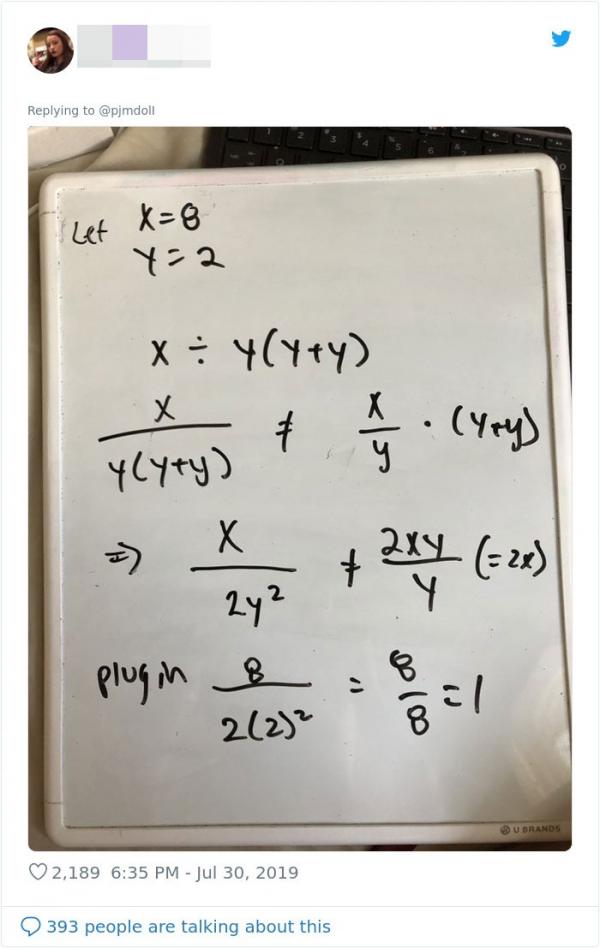 Replying to @pjmdoll
Let x=8
y=2
x ÷ y(y+y)
x/y(y+y) ≠ x/y · (y+y)
=> x/2y² ≠ 2xy/y (=2x)
plug in 8/2(2)² = 8/8 = 1
U BRANDS
2,189 6:35 PM - Jul 30, 2019
393 people are talking about this